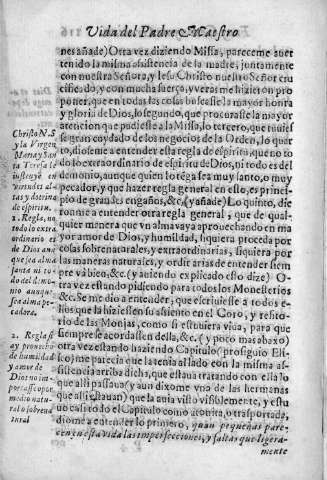 Vida del Padre Maestro
nes añade) Otra vez diziendo Missa, pareceme auer
tenido la misma assistencia de la madre, juntamente
con nuestra Señora, y Iesu Christo nuestro Señor cru
cificado, y con mucha fuerça, y veras me hizieron pro
poner, que en todas las cosas buscasse la mayor honra
y gloria de Dios, lo segundo, que procurasse la mayor
atencion que pudiesse a la Missa, lo tercero, que tuuiesse
gran cuydado de los negocios de la Orden, lo quar
to, diose me a entender esta regla de espiritu que no to
do lo extraordinario es de espiritu de Dios, ni todo es del
demonio, aunque quien lo tega sea muy santo, o muy
pecador, y que hazer regla general en esto, es princi-
pio de grandes engaños, &c. (y añade) Lo quinto, die
ronme a entender otra regla general, que de qual-
quier manera que vn alma vaya aprouechando en ma
yor amor de Dios, y humildad, siquiera proceda por
cosas sobrenaturales, y extraordinarias, siquiera por
las maneras naturales, y ordinarias de entender siem
pre và bien, &c. (y auiendo explicado esto dize) O-
tra vez estando pidiendo para todos los Monesterios
&c. Se me dio a entender, que escriuiesse a todos e-
llos que la hiziessen su assiento en el Coro, y refito-
rio de las Monjas, como si estuuiera viva, para que
siempre se acordassen della, &c. (y poco mas abaxo)
otra vez estando haziendo Capitulo (prosiguio Eli-
seo) me parecia que la tenia al lado con la misma as-
sistencia arriba dicha, que estaua tratando con ella lo
que alli passaua (y aun dixome vna de las hermanas
que alli estauan) que la auia visto visiblemente, y estu
uo casi todo el Capitulo como atonita, o trasportada,
diome a entender lo primero, quan pequeñas pare-
cen en esta vida las imperfecciones, y faltas que ligera-
mente
Christo N.S
y la Virgen
Maria y San
ta Teresa le
instruyē en
virtudes al-
tas y dotrina
de espiritu.
1. Regla, no
todo lo extra
ordinario es
de Dios aun
que sea alma
santa ni to-
do del demo-
nio aunque
sea alma pe-
cadora.
2. Regla si
ay prouecho
de humildad
y amor de
Dios no im-
porta si es por
medio natu-
ral o sobrena
tural